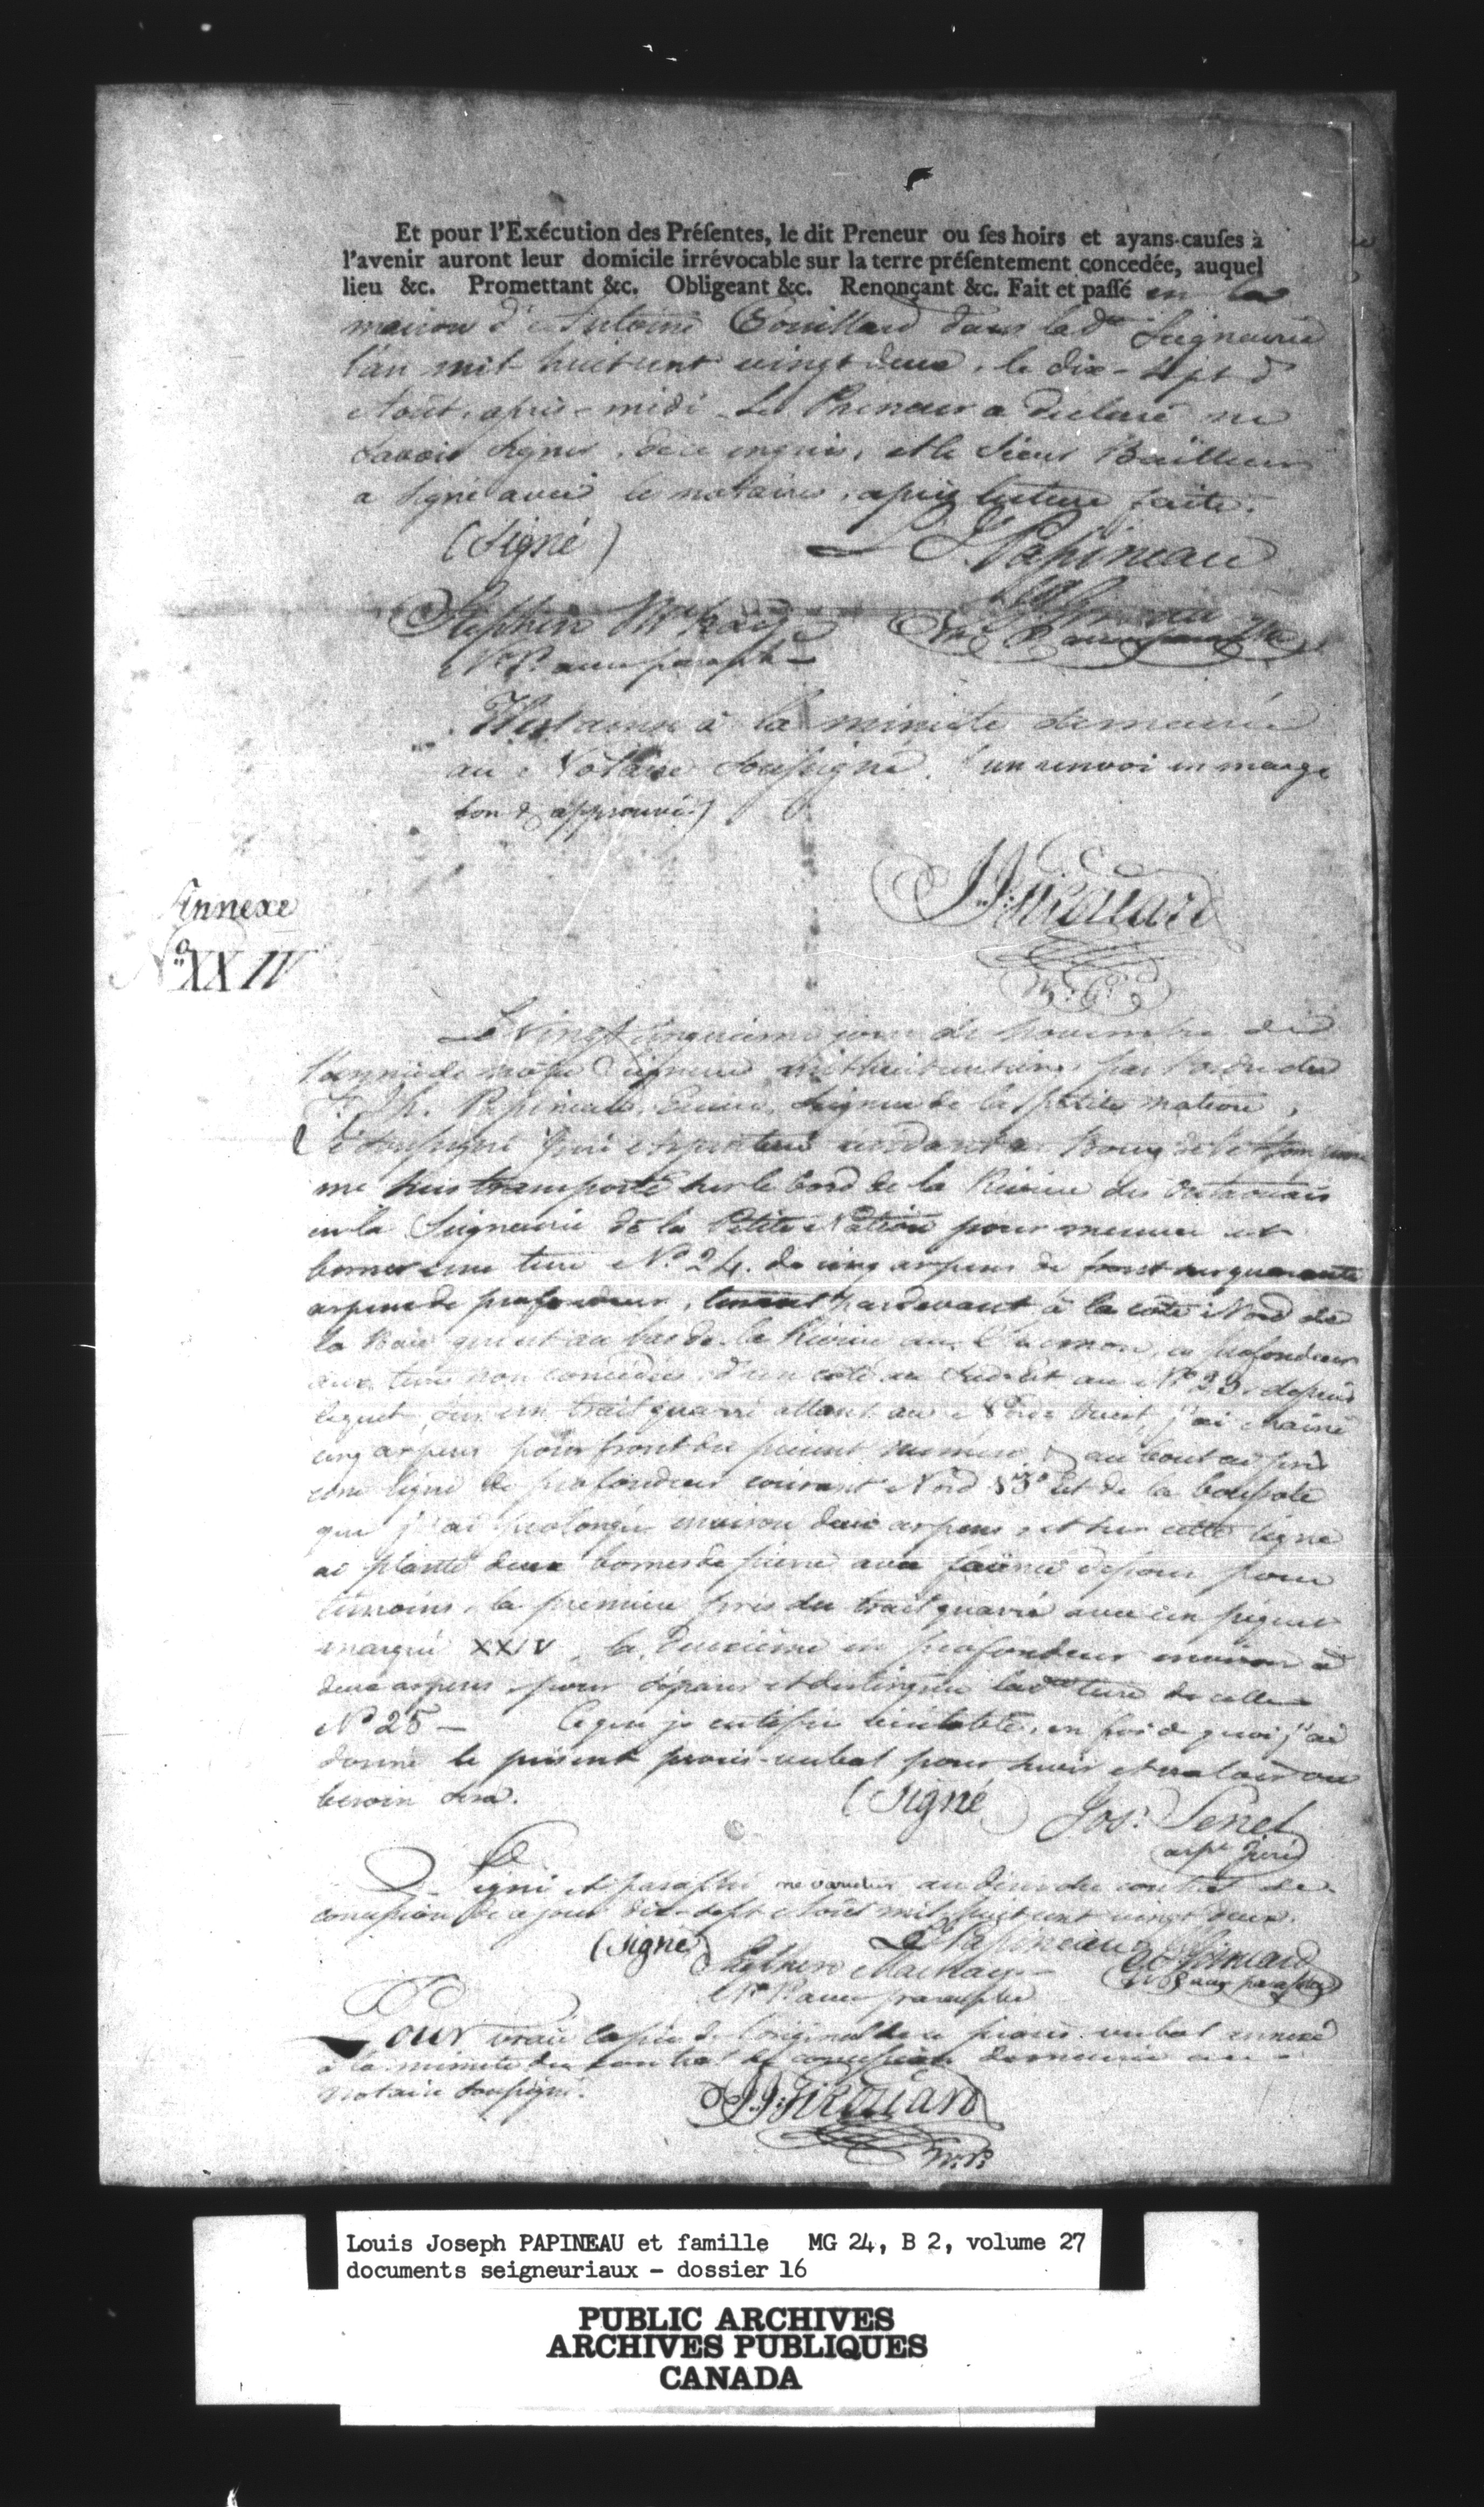 Et pour l'Exécution des Préſentes, le dit Preneur ou ſes hoirs et ayans-cauſes à
l'avenir auront leur domicile irrévocable sur la terre préſentement concedée, auquel
lieu &c. Promettant &c. Obligeant &c. Renonçant &c. Fait et paſſé en la
maison d'Antoine Couillard dans la dte Seigneurie
l'an mil huit cent vingt deux, le dix-sept d
Août, après-midi. Le Preneur a déclaré ne
savoir signer, de ce enquis, et le Sieur Bailleur
a signé avec le notaire, après lecture faite.
(Signé) L J Papineau
Stephen McKay
N.P. avec paraphe
à la minute demeurée
au Notaire soussigné. (un renvoi en marge
bon & approuvé)
JJ Girouard
N.P.
Annexe
No XXIV
Le vingt cinquième jour de Novembre de
l'année de notre Seigneur mil huit cent par l'ordre de
Jh. Papineau, Ecuier, Seigneur de la petite nation,
me suis transporté sur le bord de la Rivière des Outaouais
en la Seigneurie de la Petite Nation pour mesurer et
borner une terre No 24. de cinq arpens de front sur quarante
arpens de profondeur, tenant pardevant à la côte Nord de
la Baie qui est au bas de la Rivière au Saumon, en profondeur
aux terres non concédées, d'un côté au Sud-Est au No 23. depuis
lequel sur un trait quarré allant au Ouest, j'ai chainé
cinq arpens pour front du présent numéro & au bout ai tiré
une ligne de profondeur courant Nord Est de la boussole
que j'ai prolongée environ deux arpens, et sur cette ligne
ai planté deux bornes de pierre avec faïence dessous pour
témoins, la première près du trait quarré avec un piquet
marqué XXIV, la deuxième en profondeur environ à
deux arpens, pour séparer et distinguer la dte terre de celle
No 25 — Ce que je certifie véritable, en foi de quoi j'ai
donné le présent procès-verbal pour servir et valoir où
besoin sera. (Signé) Jos. Senet
arpr Juré
Signé et paraphé ne varietur au désir du contrat de
concession de ce jour dix-sept Août mil huit cent vingt deux.
(Signé) LJ Papineau
Stephen Mackay
N.P. avec paraphe
Pour vraie Copie de l'original de ce procès verbal annexé
à la minute du contrat de concession demeurée au
Notaire soussigné.
JJ Girouard
N.P.
Louis Joseph PAPINEAU et famille MG 24, B 2, volume 27
documents seigneuriaux - dossier 16
PUBLIC ARCHIVES
ARCHIVES PUBLIQUES
CANADA